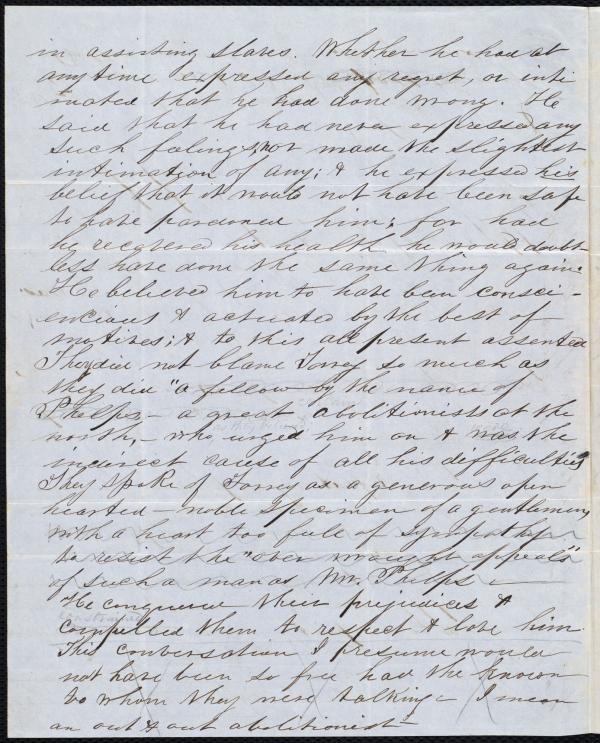 in assisting slaves. Whether he had at
any time expressed any regret, or inti
mated that he had done wrong. He
said that he had never expressed any
such felings, nor made the slightest
intimation of any; & he expressed his
belief that it would not have been safe
to have pardoned him; for had
he recovered his health he would doubt
less have done the same thing again.
He believed him to have been consci-
encious & actuated by the best of
motives; & to this all present assented
They did not blame Torrey so much as
they did "a fellow by the name of
Phelps - a great abolitionists at the
north, - who urged him on & was the
indirect cause of all his difficulties
They spoke of Torrey as a generous open
hearted - noble specimen of a gentleman,
with a heart too full of sympathy
to resist the "over wrought appeals"
of such a man as Mr. Phelps -
He conquered their prejudices &
compelled them to respect & love him.
This conversation I presume would
not have been so free had the known
to whom they were talking - I mean
an out & out abolitionist -